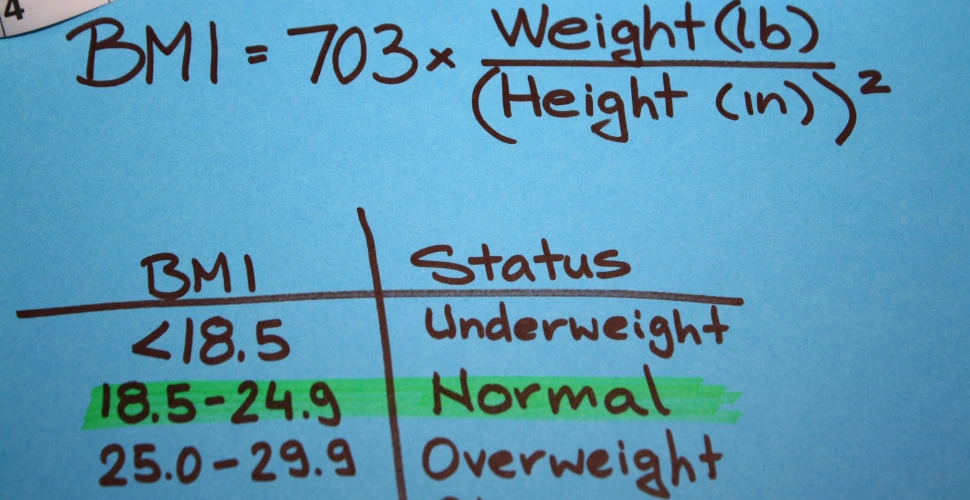 4
BMI = 703 × Weight (lb)
(Height (in))²
BMI Status
<18.5 Underweight
18.5-24.9 Normal
25.0-29.9 Overweight